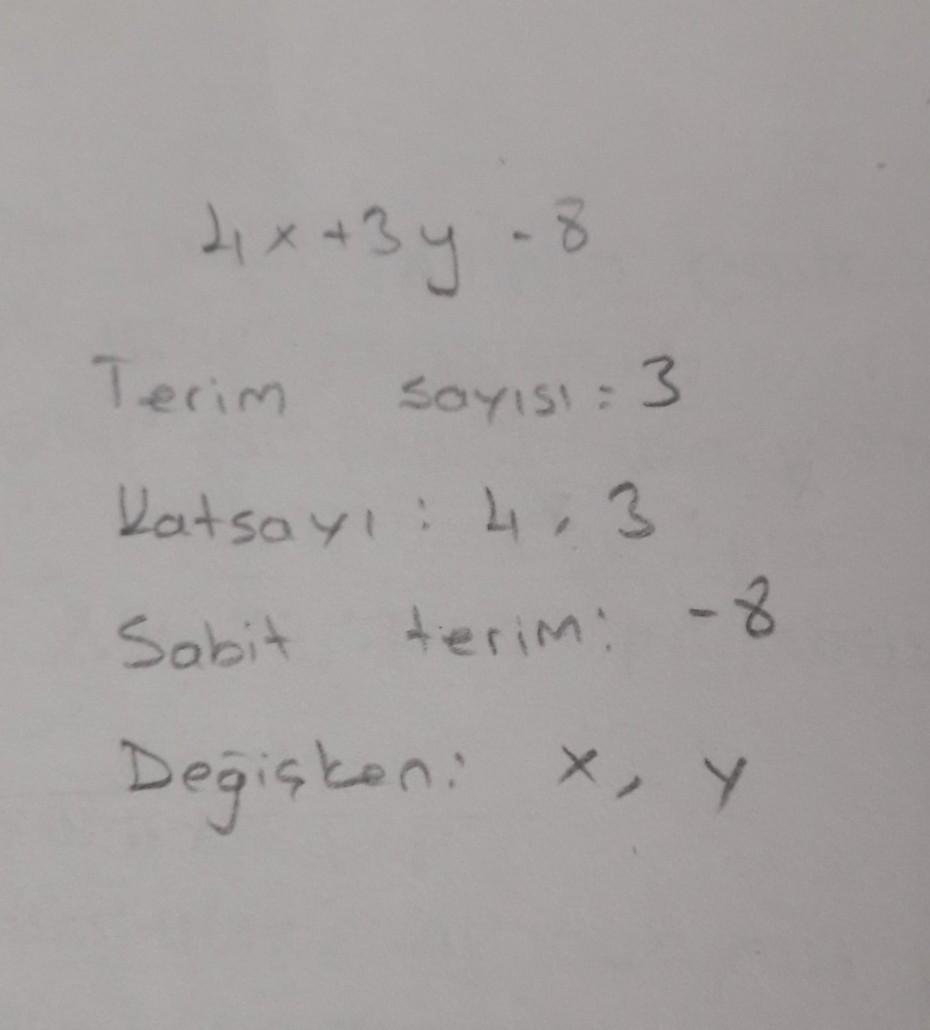 4x+3y -8
Terim sayısı: 3
Katsayı: 4, 3
Sabit terim: -8
Değişken: x, y